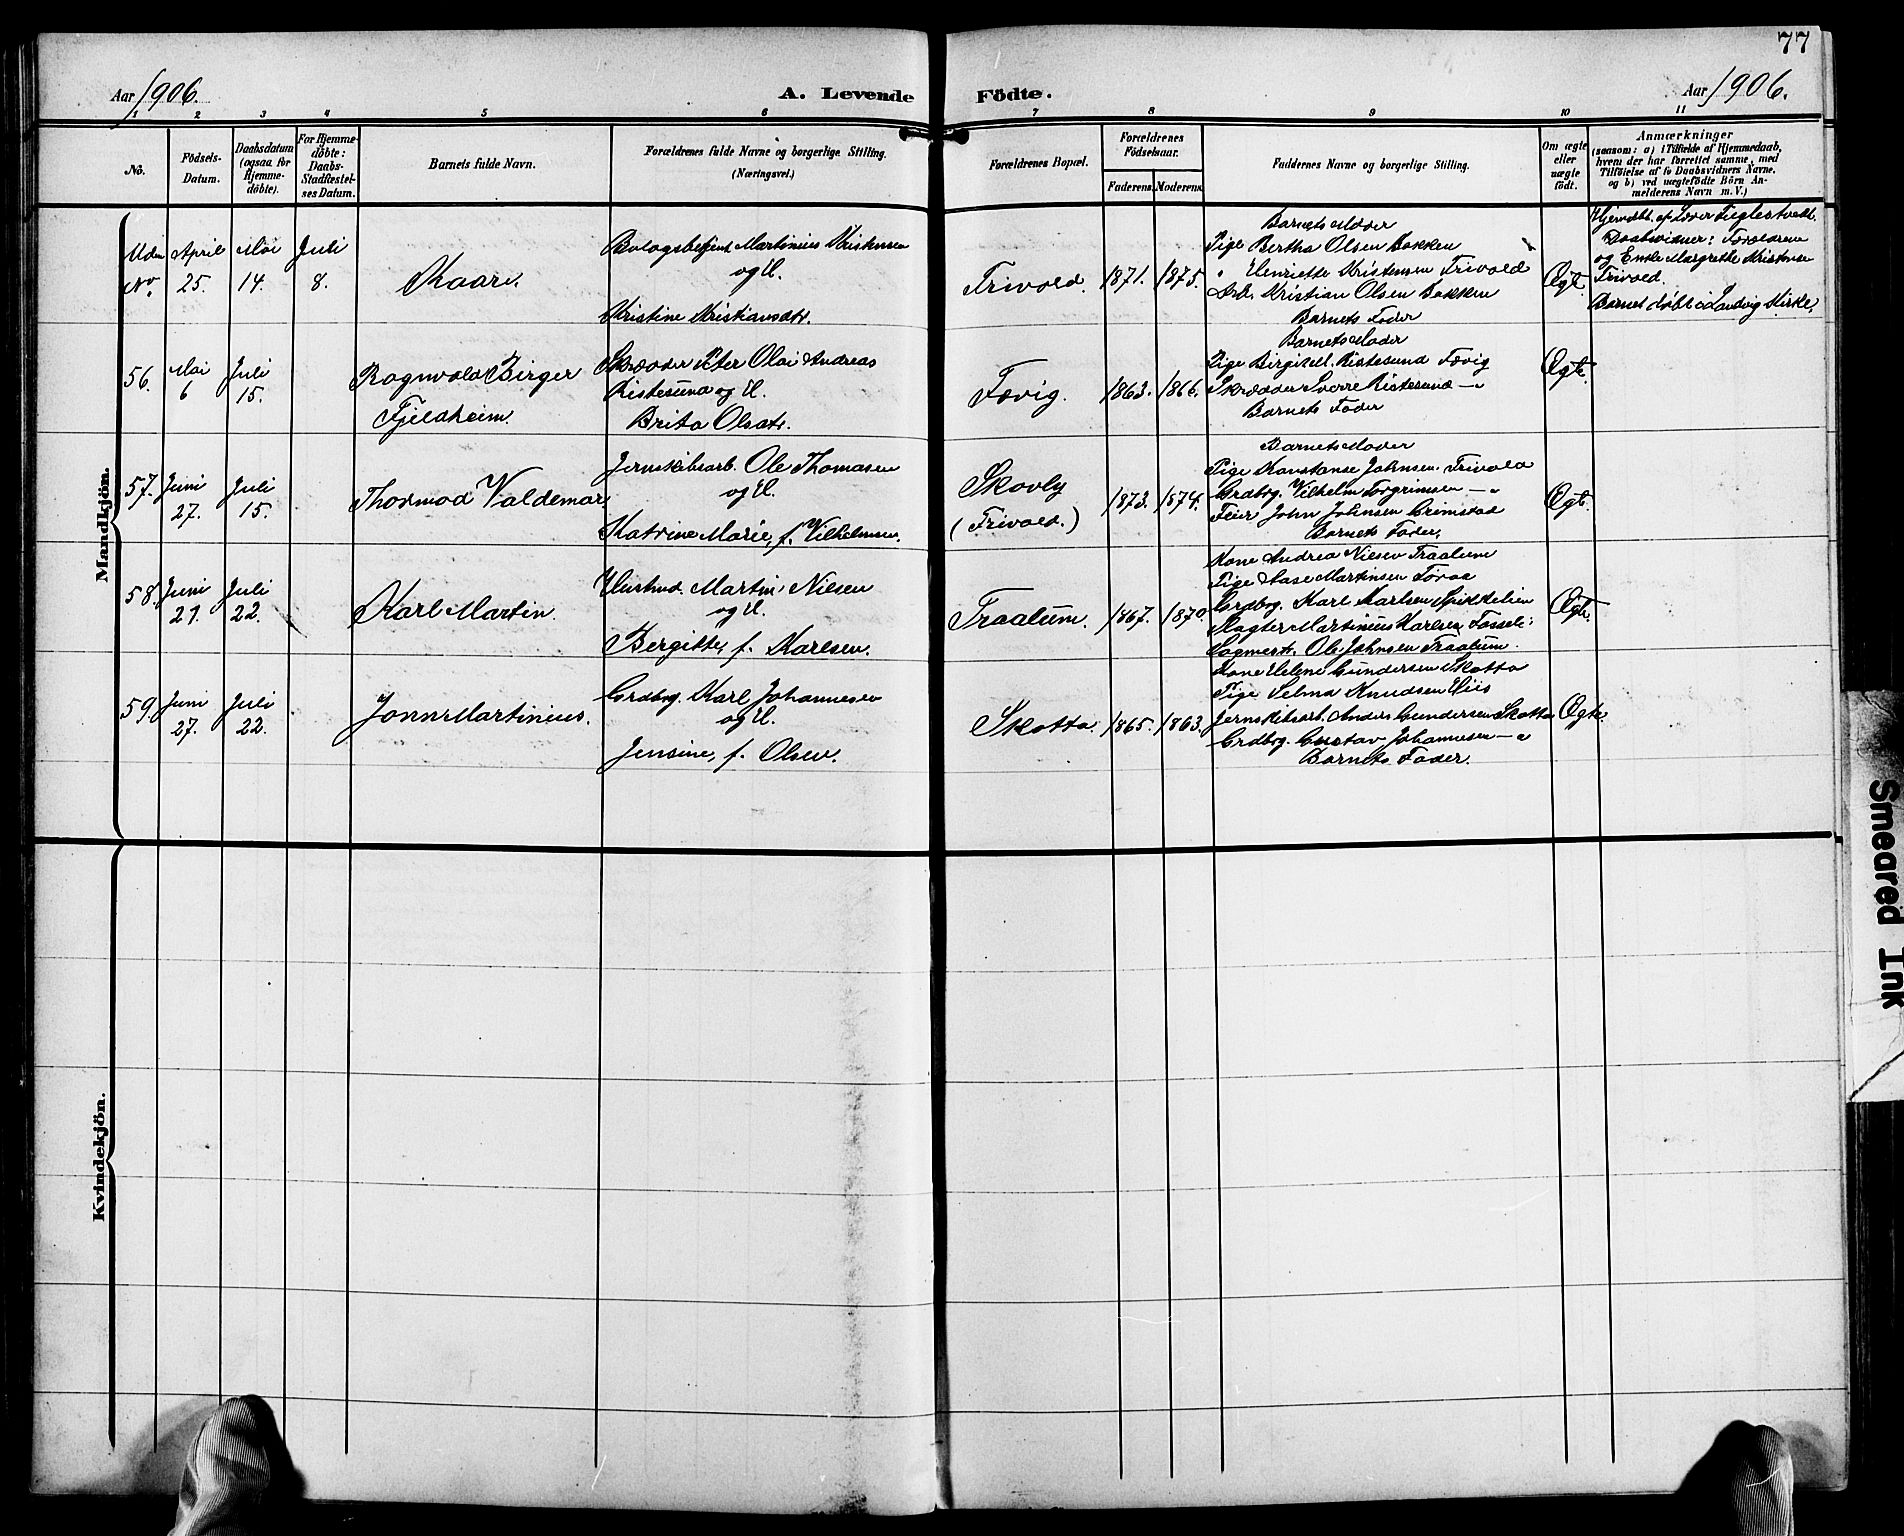 77
Aar 1906.
A. Levende Födte.
Aar 1906.
1 2 3 4 5 6 7 8 9 10 11
No.
Födsels-Datum.
Daabsdatum (ogsaa for Hjemmedöbte).
For Hjemmedöbte: Daabs-Stadfæstelses Datum.
Barnets fulde Navn.
Forældrenes fulde Navne og borgerlige Stilling.
(Næringsvei.)
Forældrenes Bopæl.
Forældrenes Födselsaar.
Faderens. Moderens.
Faddernes Navne og borgerlige Stilling.
Om ægte eller uægte födt.
Anmærkninger
(saasom: a) i Tilfælde af Hjemmedaab,
hvem der har forrettet samme, med
Tilföielse af to Daabsvidners Navne,
og b) ved uægtefödte Börn An-
melderens Navn m. V.)
Mandkjön.
Uden No.
April 25.
Mai 14.
Juli 8.
Kaare.
Martinius Kristensen
og H.
Kristine Kristiansdtr.
Trivold.
1871. 1875.
Barnets Moder
Pige Bertha Olsen Bakken
" Henriette Kristensen Trivold
Arb. Kristian Olsen Bakken
Barnets Fader
Ægte.
Hjemdbt. af Lærer
Daabsvidner: Forældrene
og Enke Margrethe Kristensen
Trivold.
Barnet döbt i Landvig Kirke.
56.
Mai 6
Juli 15.
Ragnvald Birger
Fjeldheim.
Skrædder Peter Olai Andreas
Ristesund og H.
Brita Olsdtr.
Fævig.
1863. 1866.
Barnets Moder
Pige Birgit M. Ristesund Fævig
Skrædder Sverre Ristesund —"
Barnets Fader
Ægte.
57.
Juni 27.
Juli 15.
Thormod Valdemar.
Jernskibsarb. Ole Thomasen
og H.
Katrine Marie, f. Vilhelmsen.
Skovly
(Trivold.)
1873. 1874.
Barnets Moder
Pige Konstanse Johnsen. Trivold
Grdbrg. Vilhelm Torgrimsen —"
Feier John Johnsen Grimstad
Barnets Fader.
Ægte.
58.
Juni 21.
Juli 22.
Karl Martin.
Husmd. Martin Nilsen
og H.
Bergitte, f. Karlsen.
Traalum.
1867. 1870.
Kone Andrea Nilsen Traalum
Pige Aase Martinsen
Grdbrg. Karl Karlsen
Martinius Karlsen Fosseli
Ole Johnsen Traalum.
Ægte.
59.
Juni 27.
Juli 22.
Jonn Martinius.
Grdbrg. Karl Johannesen
og H.
Jensine, f. Olsen.
Skotta.
1865. 1863.
Kone Helene Gundersen Skotta
Pige Selma Knudsen Hiis
Jernskibsarb. Anders Gundersen Skotta
Grdbrg. Gustav Johannesen —"
Barnets Fader.
Ægte.
Kvindekjön.
Smeared Ink